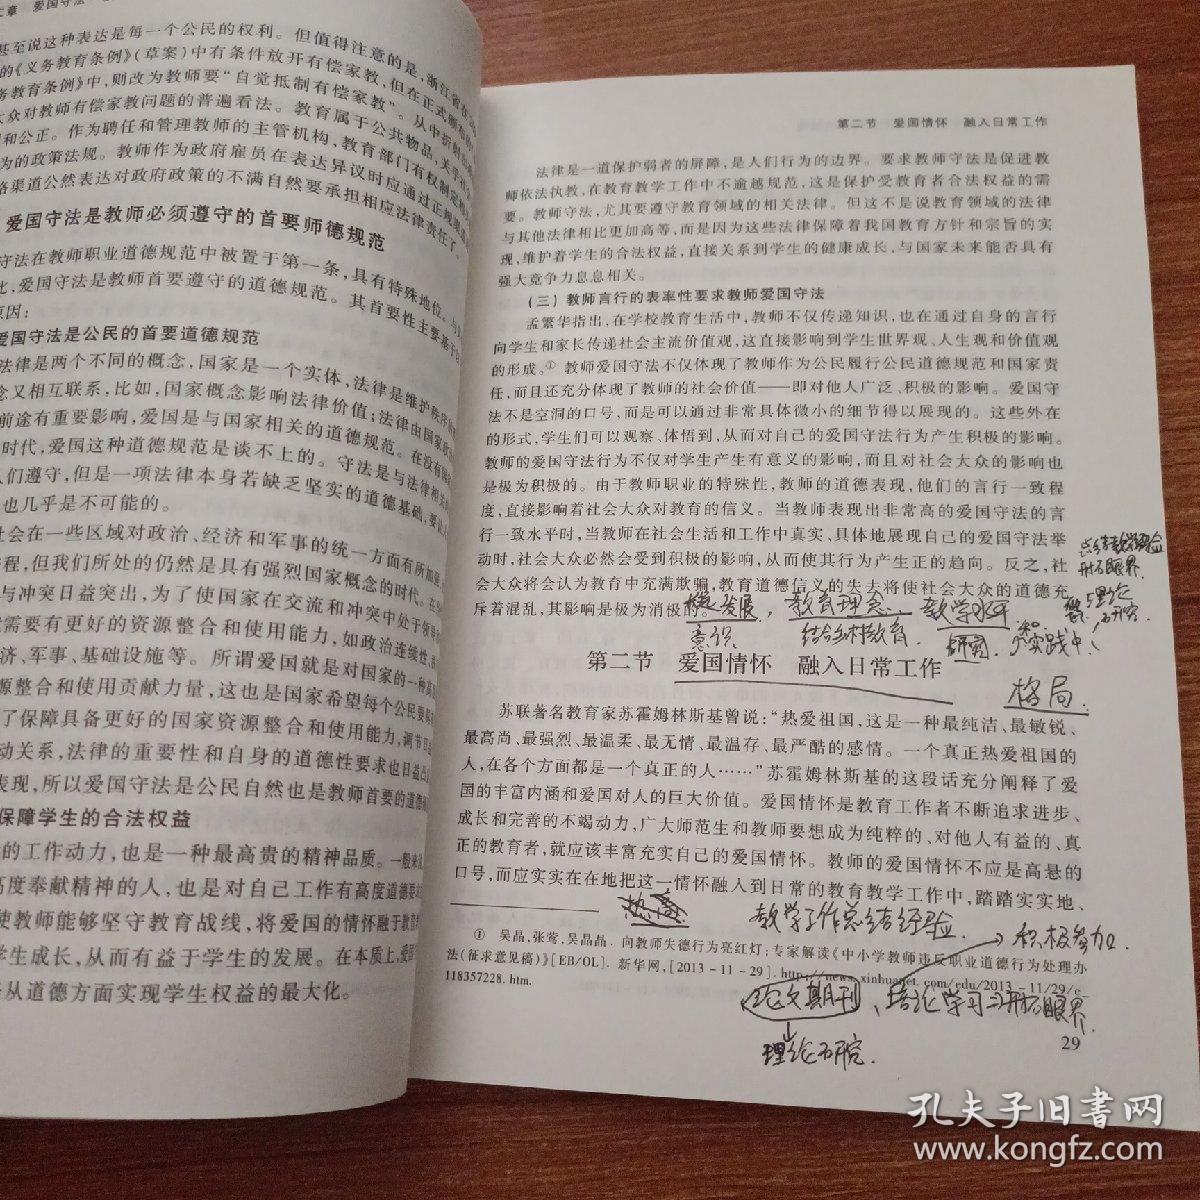 二章 爱国守法
甚至说这种表达是每一个公民的权利。但值得注意的是,浙江省在
的《义务教育条例》(草案)中有条件放开有偿家教,但在正式
务教育条例》中,则改为教师要“自觉抵制有偿家教”。从中折射
大众对教师有偿家教问题的普遍看法。教育属于公共物品,关乎社
和公正。作为聘任和管理教师的主管机构,教育部门有权制定
为的政策法规。教师作为政府雇员在表达异议时应通过正规渠道
渠道公然表达对政府政策的不满自然要承担相应法律责任了。
爱国守法是教师必须遵守的首要师德规范
守法在教师职业道德规范中被置于第一条,具有特殊地位。与
此,爱国守法是教师首要遵守的道德规范。其首要性主要基于
原因:
爱国守法是公民的首要道德规范
法律是两个不同的概念,国家是一个实体,法律是维护秩序的
念又相互联系,比如,国家概念影响法律价值;法律由国家
前途有重要影响,爱国是与国家相关的道德规范。在没有国
时代,爱国这种道德规范是谈不上的。守法是与法律相关
人们遵守,但是一项法律本身若缺乏坚实的道德基础,要让
也几乎是不可能的。
社会在一些区域对政治、经济和军事的统一方面有所加强
程,但我们所处的仍然是具有强烈国家概念的时代。在
与冲突日益突出,为了使国家在交流和冲突中处于领导
需要有更好的资源整合和使用能力,如政治连续性、
济、军事、基础设施等。所谓爱国就是对国家的一种
源整合和使用贡献力量,这也是国家希望每个公民要
了保障具备更好的国家资源整合和使用能力,调节
动关系,法律的重要性和自身的道德性要求也日益凸
表现,所以爱国守法是公民自然也是教师首要的道德
保障学生的合法权益
的工作动力,也是一种最高贵的精神品质。一般来说
高度奉献精神的人,也是对自己工作有高度道德要求
使教师能够坚守教育战线,将爱国的情怀融于教育
学生成长,从而有益于学生的发展。在本质上,爱国
从道德方面实现学生权益的最大化。
第二节 爱国情怀 融入日常工作
法律是一道保护弱者的屏障,是人们行为的边界。要求教师守法是促进教
师依法执教,在教育教学工作中不逾越规范,这是保护受教育者合法权益的需
要。教师守法,尤其要遵守教育领域的相关法律。但这不是说教育领域的法律
与其他法律相比更加高等,而是因为这些法律保障着我国教育方针和宗旨的实
现,维护着学生的合法权益,直接关系到学生的健康成长,与国家未来能否具有
强大竞争力息息相关。
(三)教师言行的表率性要求教师爱国守法
孟繁华指出,在学校教育生活中,教师不仅传递知识,也在通过自身的言行
向学生和家长传递社会主流价值观,这直接影响到学生世界观、人生观和价值观
的形成。① 教师爱国守法不仅体现了教师作为公民履行公民道德规范和国家责
任,而且还充分体现了教师的社会价值——即对他人广泛、积极的影响。爱国守
法不是空洞的口号,而是可以通过非常具体微小的细节得以展现的。这些外在
的形式,学生们可以观察、体悟到,从而对自己的爱国守法行为产生积极的影响。
教师的爱国守法行为不仅对学生产生有意义的影响,而且对社会大众的影响也
是极为积极的。由于教师职业的特殊性,教师的道德表现,他们的言行一致程
度,直接影响着社会大众对教育的信义。当教师表现出非常高的爱国守法的言
行一致水平时,当教师在社会生活和工作中真实、具体地展现自己的爱国守法举
动时,社会大众必然会受到积极的影响,从而使其行为产生正的趋向。反之,社
会大众将会认为教育中充满欺骗,教育道德信义的失去将使社会大众的道德充
斥着混乱,其影响是极为消极的。
发展, 教育理念 教学水平
意识 结合乡村教育 研究 实践中
开拓眼界
理论
研究
格局
第二节 爱国情怀 融入日常工作
苏联著名教育家苏霍姆林斯基曾说:“热爱祖国,这是一种最纯洁、最敏锐、
最高尚、最强烈、最温柔、最无情、最温存、最严酷的感情。一个真正热爱祖国的
人,在各个方面都是一个真正的人……”苏霍姆林斯基的这段话充分阐释了爱
国的丰富内涵和爱国对人的巨大价值。爱国情怀是教育工作者不断追求进步、
成长和完善的不竭动力,广大师范生和教师要想成为纯粹的、对他人有益的、真
正的教育者,就应该丰富充实自己的爱国情怀。教师的爱国情怀不应是高悬的
口号,而应实实在在地把这一情怀融入到日常的教育教学工作中,踏踏实实地、
教学工作总结经验 积极参加
① 吴晶,张莺,吴晶晶. 向教师失德行为亮红灯:专家解读《中小学教师违反职业道德行为处理办
法(征求意见稿)》[EB/OL]. 新华网,[2013-11-29]. http://news.xinhuanet.com/edu/2013-11/29/c_
118357228.htm.
论文期刊、理论学习 开拓眼界.
理论研究.
29
孔夫子旧书网
www.kongfz.com